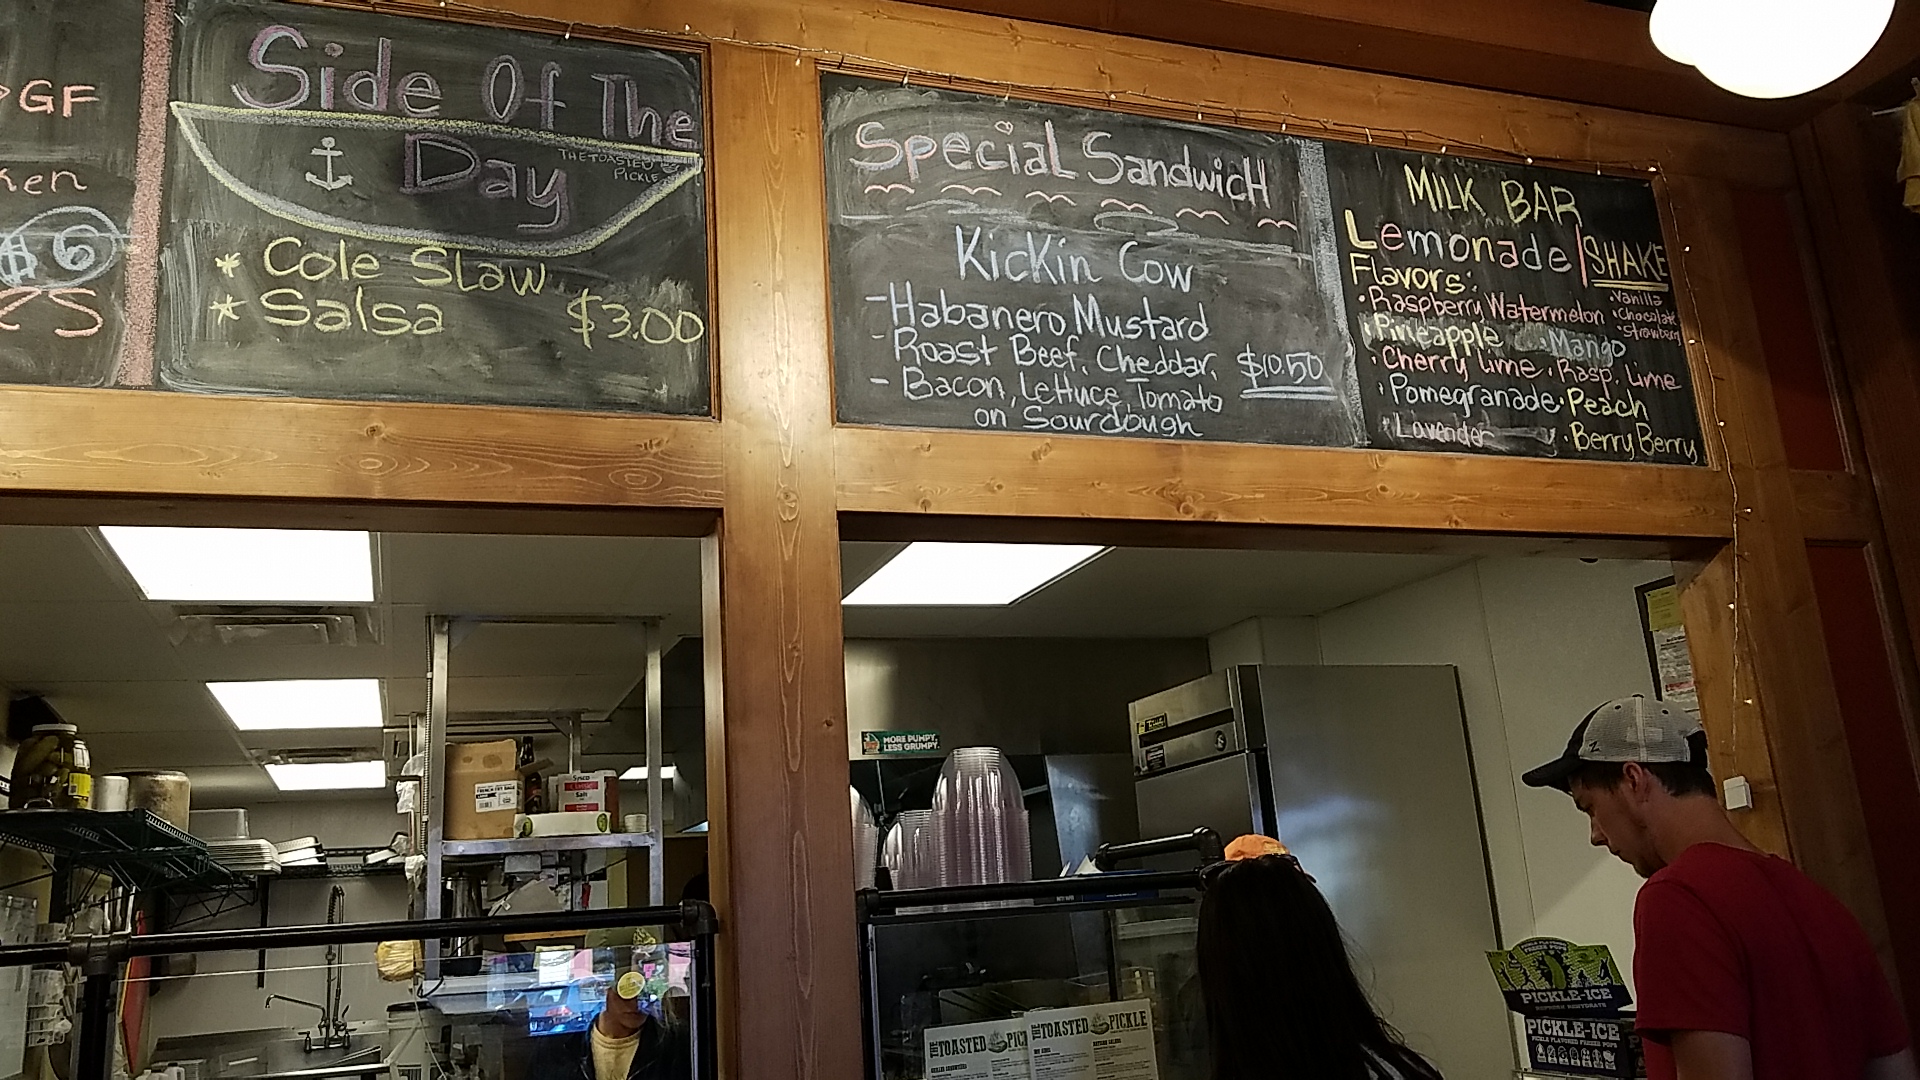 GF
ken
$6
Side Of The
Day
THE TOASTED
PICKLE
* Cole Slaw
* Salsa $3.00
Special Sandwich
Kickin Cow
- Habanero Mustard
- Roast Beef, Cheddar, $10.50
- Bacon, Lettuce, Tomato
on Sourdough
MILK BAR
Lemonade | SHAKE
Flavors:
• Raspberry Watermelon
• Pineapple • Mango
• Cherry Lime • Rasp. Lime
• Pomegranade • Peach
• Lavender • Berry Berry
• Vanilla
• Chocolate
• Strawberry
MORE PUMPY,
LESS GRUMPY.
Sysco
Classic
Salt
THE TOASTED PICKLE
THE TOASTED PICKLE
PICKLE-ICE
PICKLE-ICE